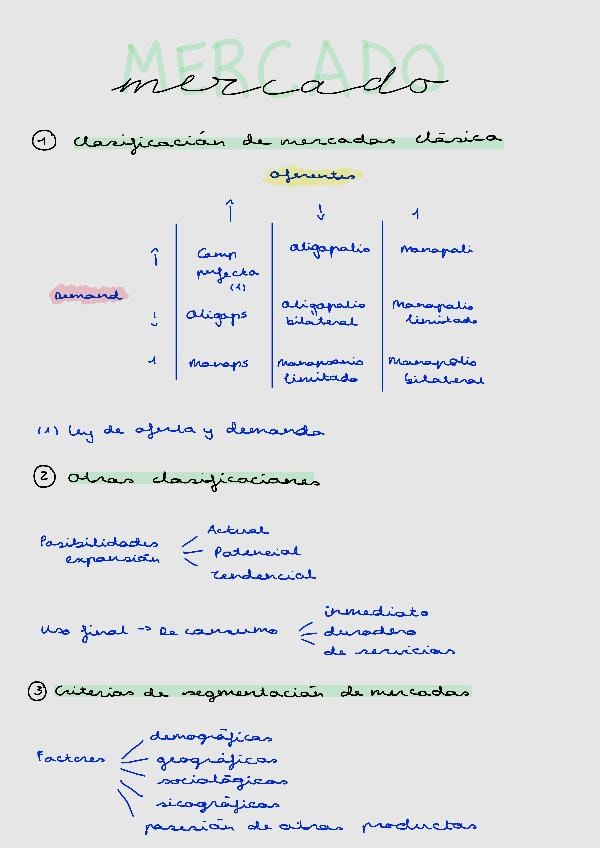 MERCADO
mercado
1 Clasificación de mercados clásica
Oferentes
↑ ↓ 1
↑ Comp oligopolio monopoli
perfecta
(1)
Demand
↓ Oligops oligopolio Monopolio
bilateral limitado
1 Monops monopsonio Monopolio
limitado bilateral
(1) ley de oferta y demanda
2 otras clasificaciones
Actual
Posibilidades
expansión
Potencial
Tendencial
inmediato
Uso final → De consumo duradero
de servicios
3 Criterios de segmentación de mercados
demográficas
Factores geográficas
sociológicas
sicográficas
posesión de otros productos